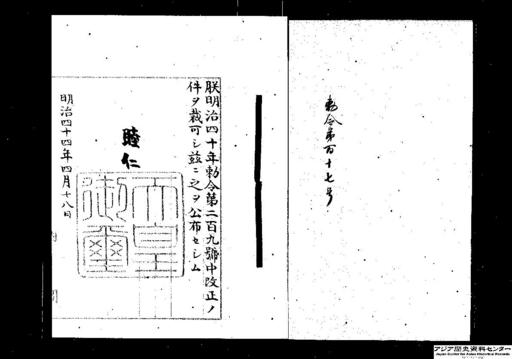 勅令第百十七号
朕明治四十年勅令第二百九號中改正ノ
件ヲ裁可シ茲ニ之ヲ公布セシム
睦仁
天皇
御璽
明治四十四年四月十八日
内閣
アジア歴史資料センター
Japan Center for Asian Historical Records